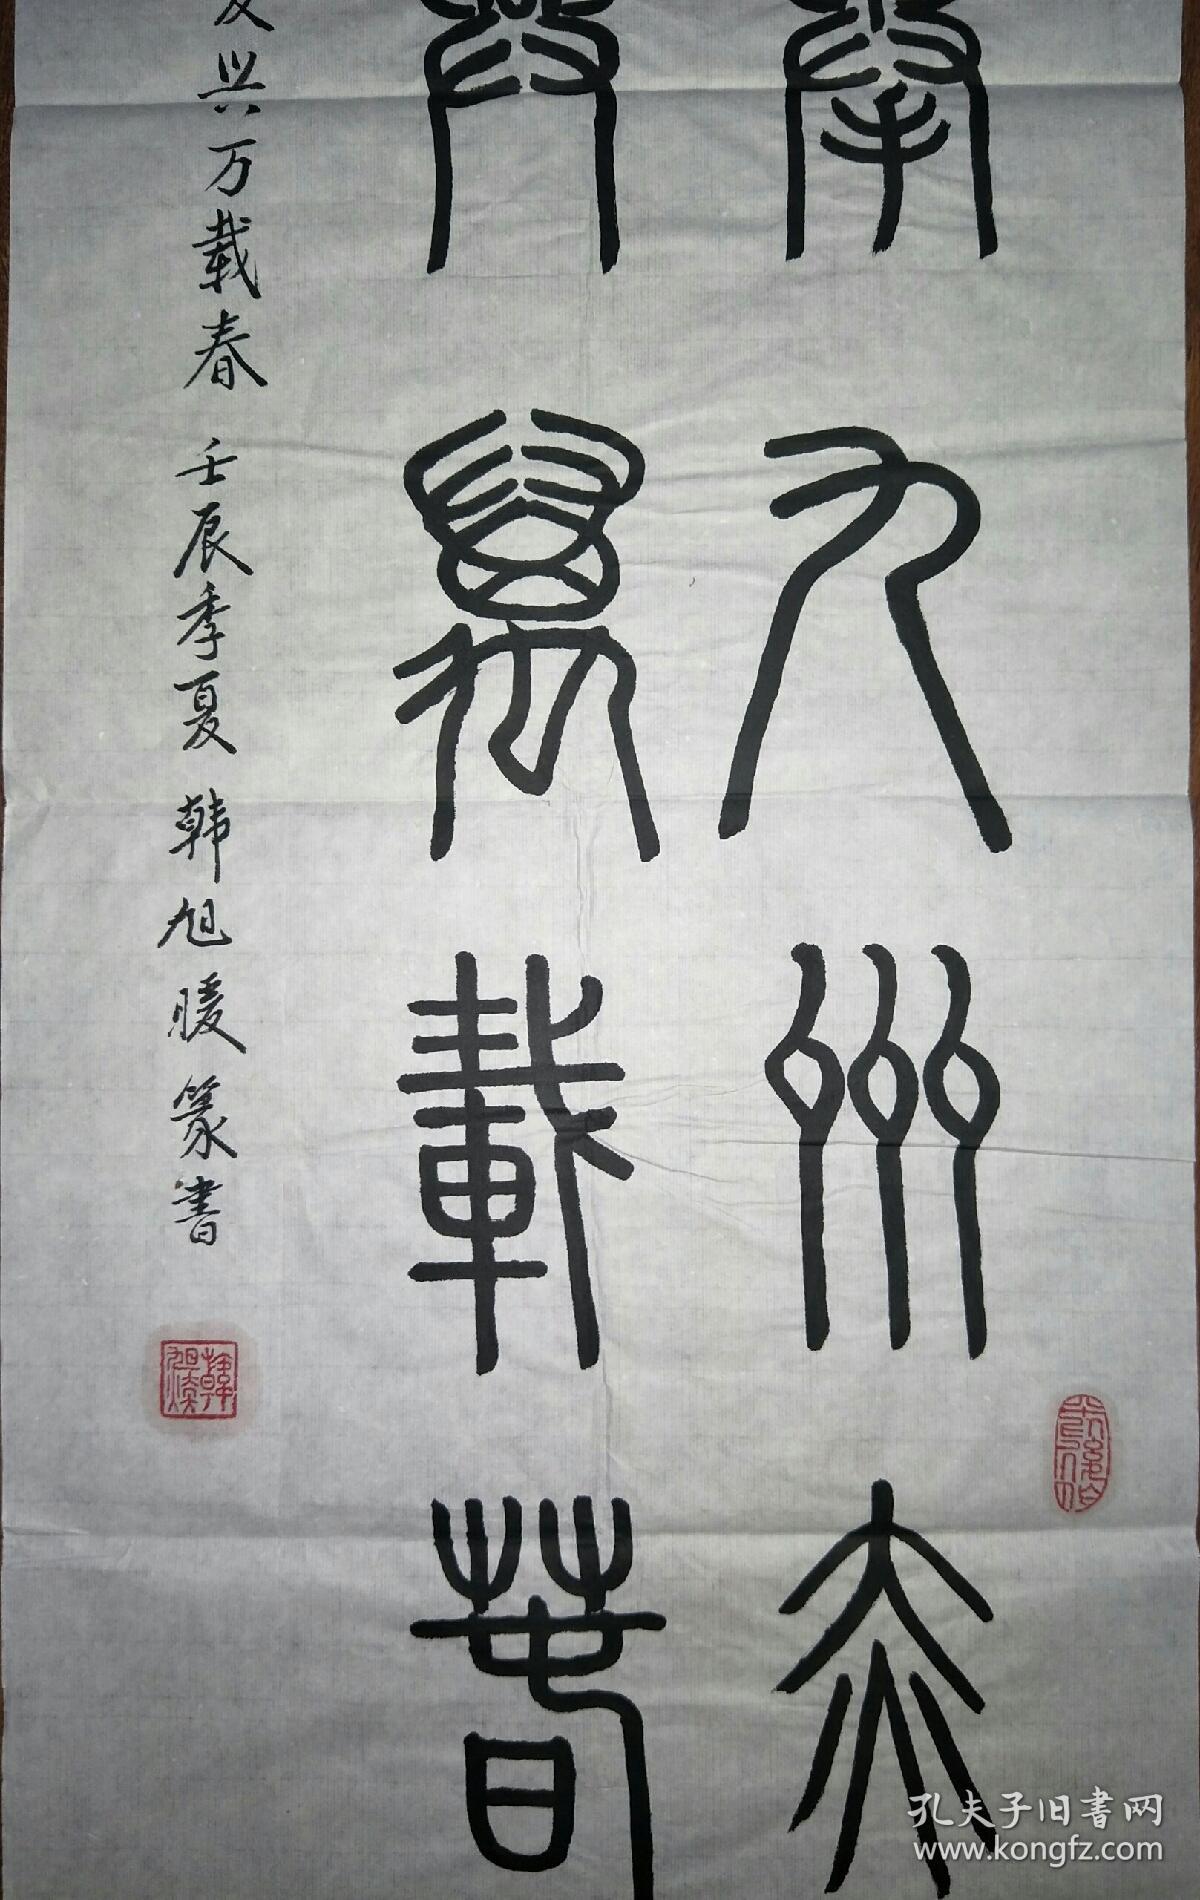 舉九州赤
興萬載春
复兴万载春 壬辰季夏 韩旭暖篆书
孔夫子旧书网
www.kongfz.com